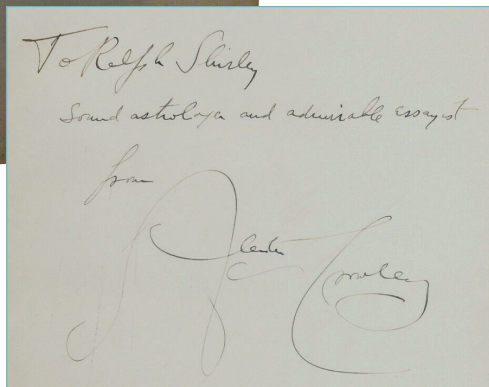 To Ralph Shirley
Sound astrologer and admirable essayist
from
Aleister Crowley